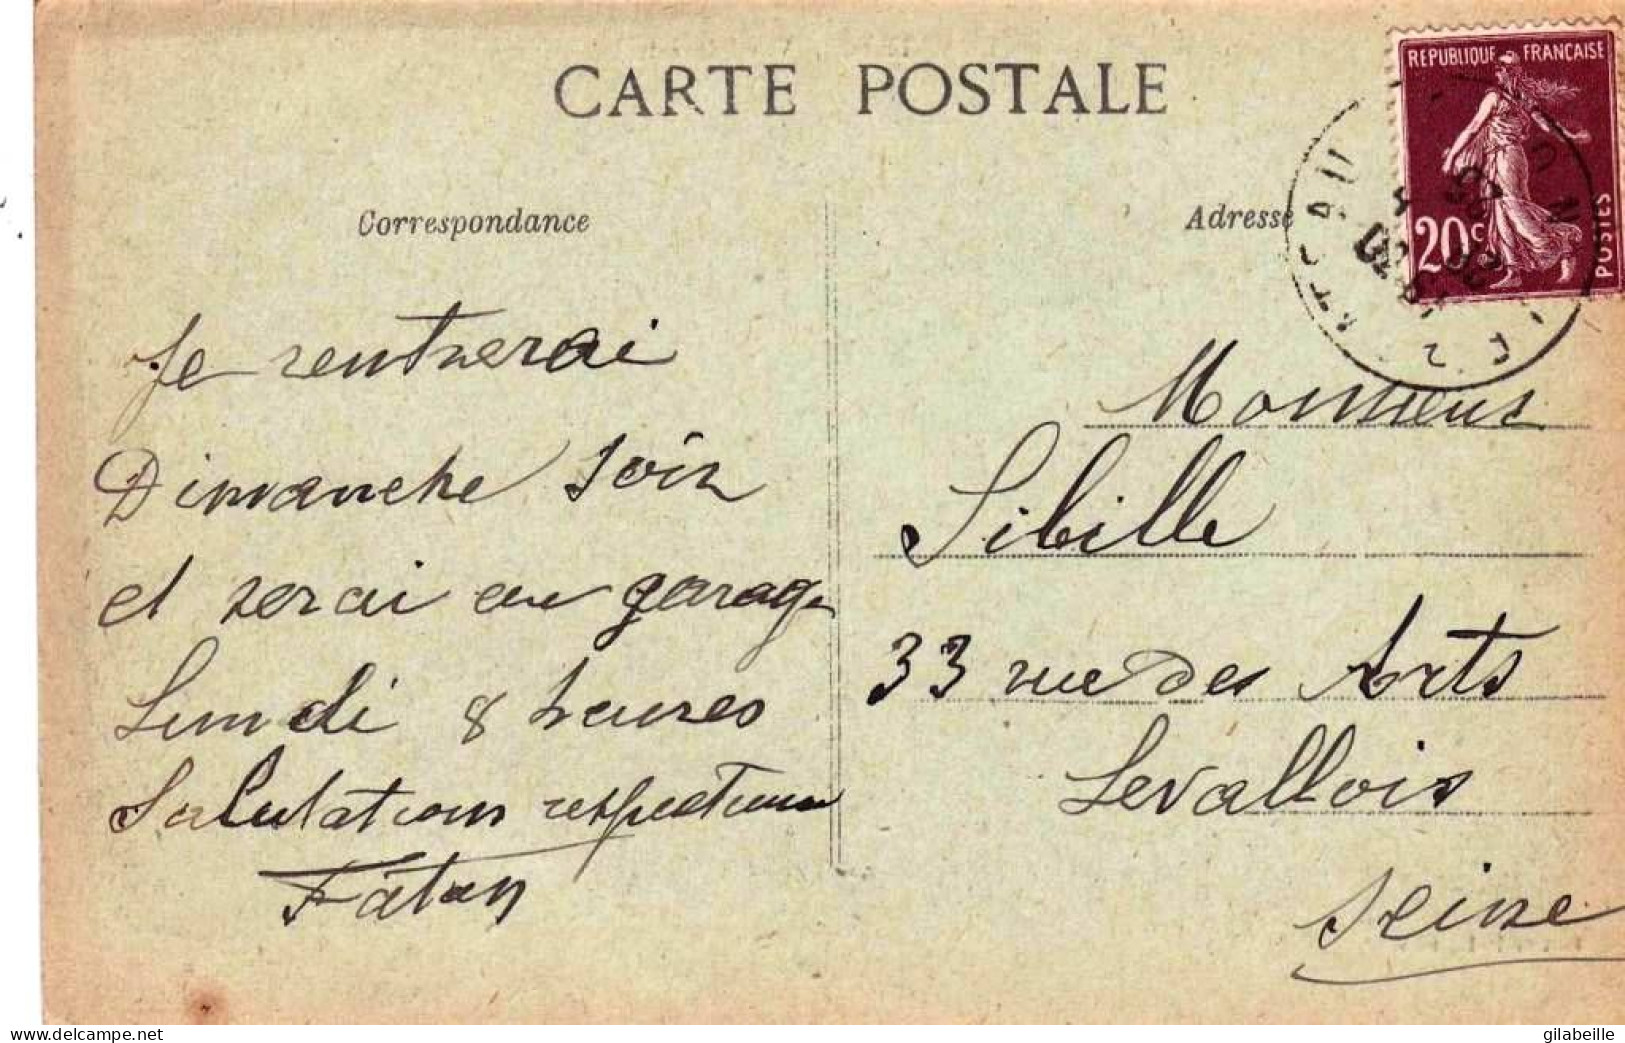 CARTE POSTALE
REPUBLIQUE FRANCAISE
20c
POSTES
Correspondance
Adresse
Je rentrerai
Dimanche soir
et serai au garage
Lundi 8 heures
Salutations respectueuses
Fatan
Monsieur
Sibille
33 rue des Arts
Levallois
Seine
www.delcampe.net
gilabeille